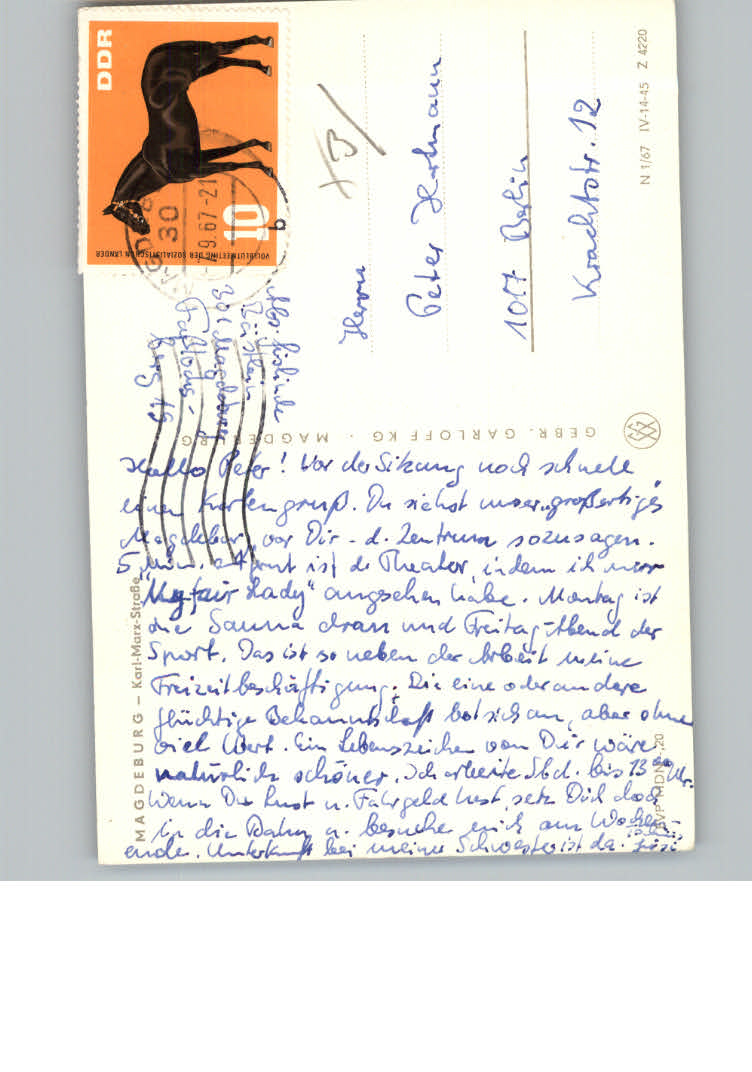 DDR
10
VOLLBLUTMEETING DER SOZIALISTISCHEN LÄNDER
30
9.67-21
b
Herrn
Peter Hartmann
1017 Berlin
Krachtstr. 12
N 1/67 IV-14-45 Z 4220
Abs.
301 Magdeburg
berg 19
GEBR. GARLOFF KG · MAGDEBURG
MAGDEBURG – Karl-Marx-Straße
EVP MDN -,20
Hallo Peter! Vor der Sitzung noch schnell
einen Kartengruß. Du siehst unser „großartiges
Magdeburg vor Dir - d. Zentrum sozusagen.
5 Min. entfernt ist d. Theater, indem ich
"My fair Lady" angesehen habe. Montag ist
die Sauna dran und Freitag-Abend der
Sport. Das ist so neben der Arbeit meine
Freizeitbeschäftigung. Die eine oder andere
flüchtige Bekanntschaft bot sich an, aber ohne
viel Wert. Ein Lebenszeichen von Dir wäre
natürlich schöner. Ich arbeite Sbd. bis 13⁰⁰ Uhr.
Wenn Du Lust u. Fahrgeld hast, setz Dich doch
in die Bahn u. besuche mich am Wochen-
ende. Unterkunft bei meiner Schwester ist da.